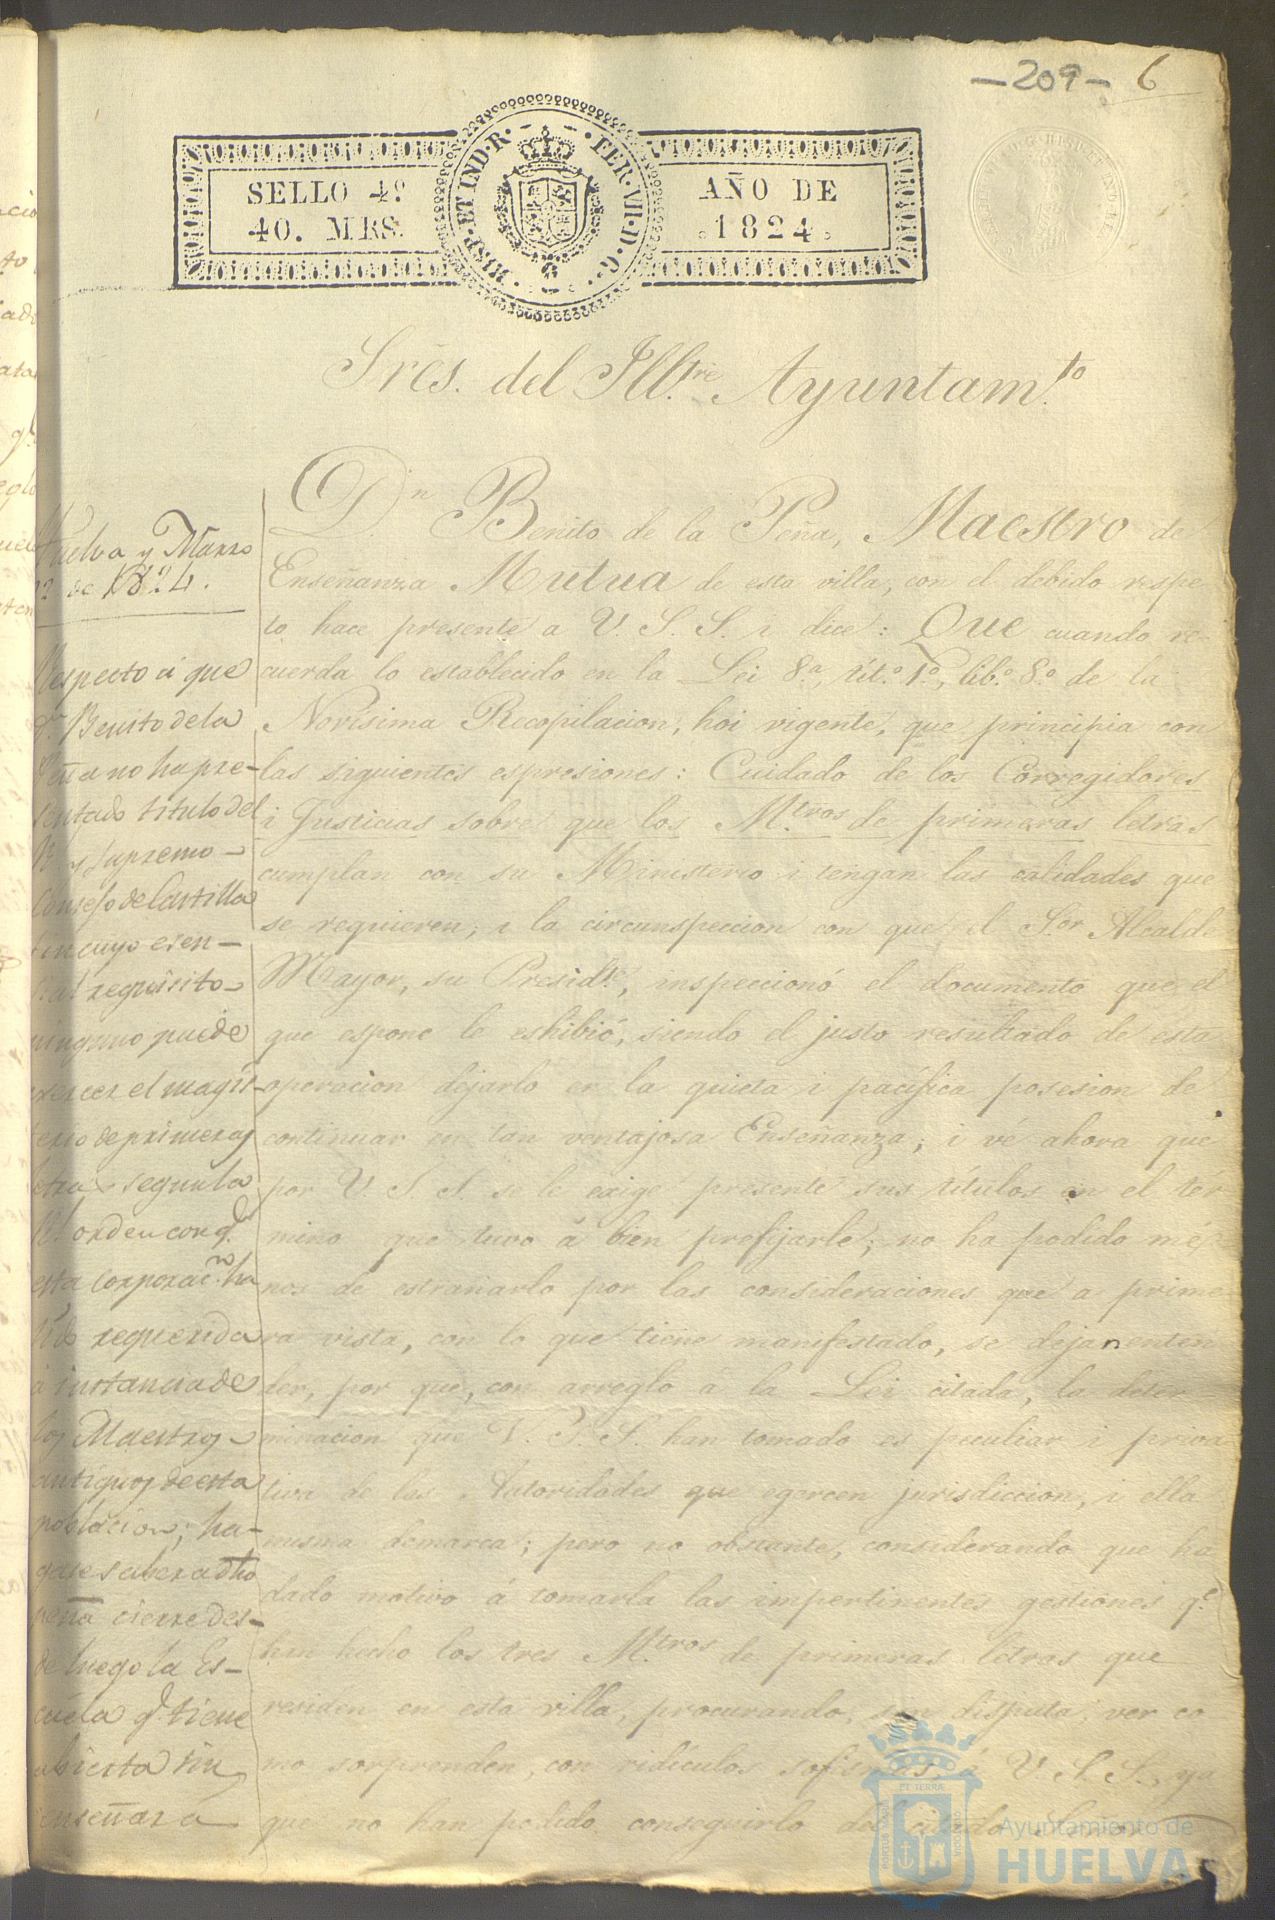 —209— 6
SELLO 4º
40. MRS.
HISP·ET IND·R· FER·VII·D·G·
AÑO DE
1824.
Sres. del Ill.tre Ayuntam.to
D.n Benito de la Peña, Maestro de
Enseñanza Mutua de esta villa, con el debido respe-
to hace presente a V. S. S. i dice: Que cuando re-
cuerda lo establecido en la Lei 8.ª, tít.º 1.º, lib.º 8.º de la
Novísima Recopilacion, hoi vigente, que principia con
las siguientes espresiones: Cuidado de los Corregidores
i Justicias sobre que los M.tros de primeras letras
cumplan con su Ministerio i tengan las calidades que
se requieren, i la circunspeccion con que el Sor Alcalde
Mayor, su Presid.te, inspeccionó el documento que el
que espone le eshibió, siendo el justo resultado de esta
operacion dejarlo en la quieta i pacífica posesion de
continuar en tan ventajosa Enseñanza; i vé ahora que
por V. S. S. se le exige presente sus títulos en el tér-
mino que tuvo á bien prefijarle; no ha podido mé-
nos de estrañarlo por las consideraciones que a prime-
ra vista, con lo que tiene manifestado, se dejan enten-
der, por que, con arreglo á la Lei citada, la deter-
minacion que V. S. S. han tomado es peculiar i priva-
tiva de las Autoridades que egercen jurisdiccion, i ella
misma demarca; pero no obstante, considerando que ha
dado motivo á tomarla las impertinentes gestiones q.e
han hecho los tres M.tros de primeras letras que
residen en esta villa, procurando, sin disputa, ver co-
mo sorprenden, con ridículos sofismas, á V. S. S., ya
que no han podido conseguirlo del citado
Huelva y Marzo
de 1824.
Respecto á que
Dn Benito de la
Peña no ha pre-
sentado titulo del
Rl y Supremo
Consejo de Castilla
sin cuyo esen-
cial requisito
ninguno puede
exercer el magis-
terio de primeras
letras segun la
Rl orden con q.e
esta corporac.n ha
sido requerida
á instancia de
los Maestros
antiguos de esta
poblacion; ha-
gase saber a dho
Peña cierre des-
de luego la Es-
cuela q.e tiene
abierta sin
enseñar a
ET TERRÆ
PORTUS MARIS
CUSTODIA
Ayuntamiento de
HUELVA